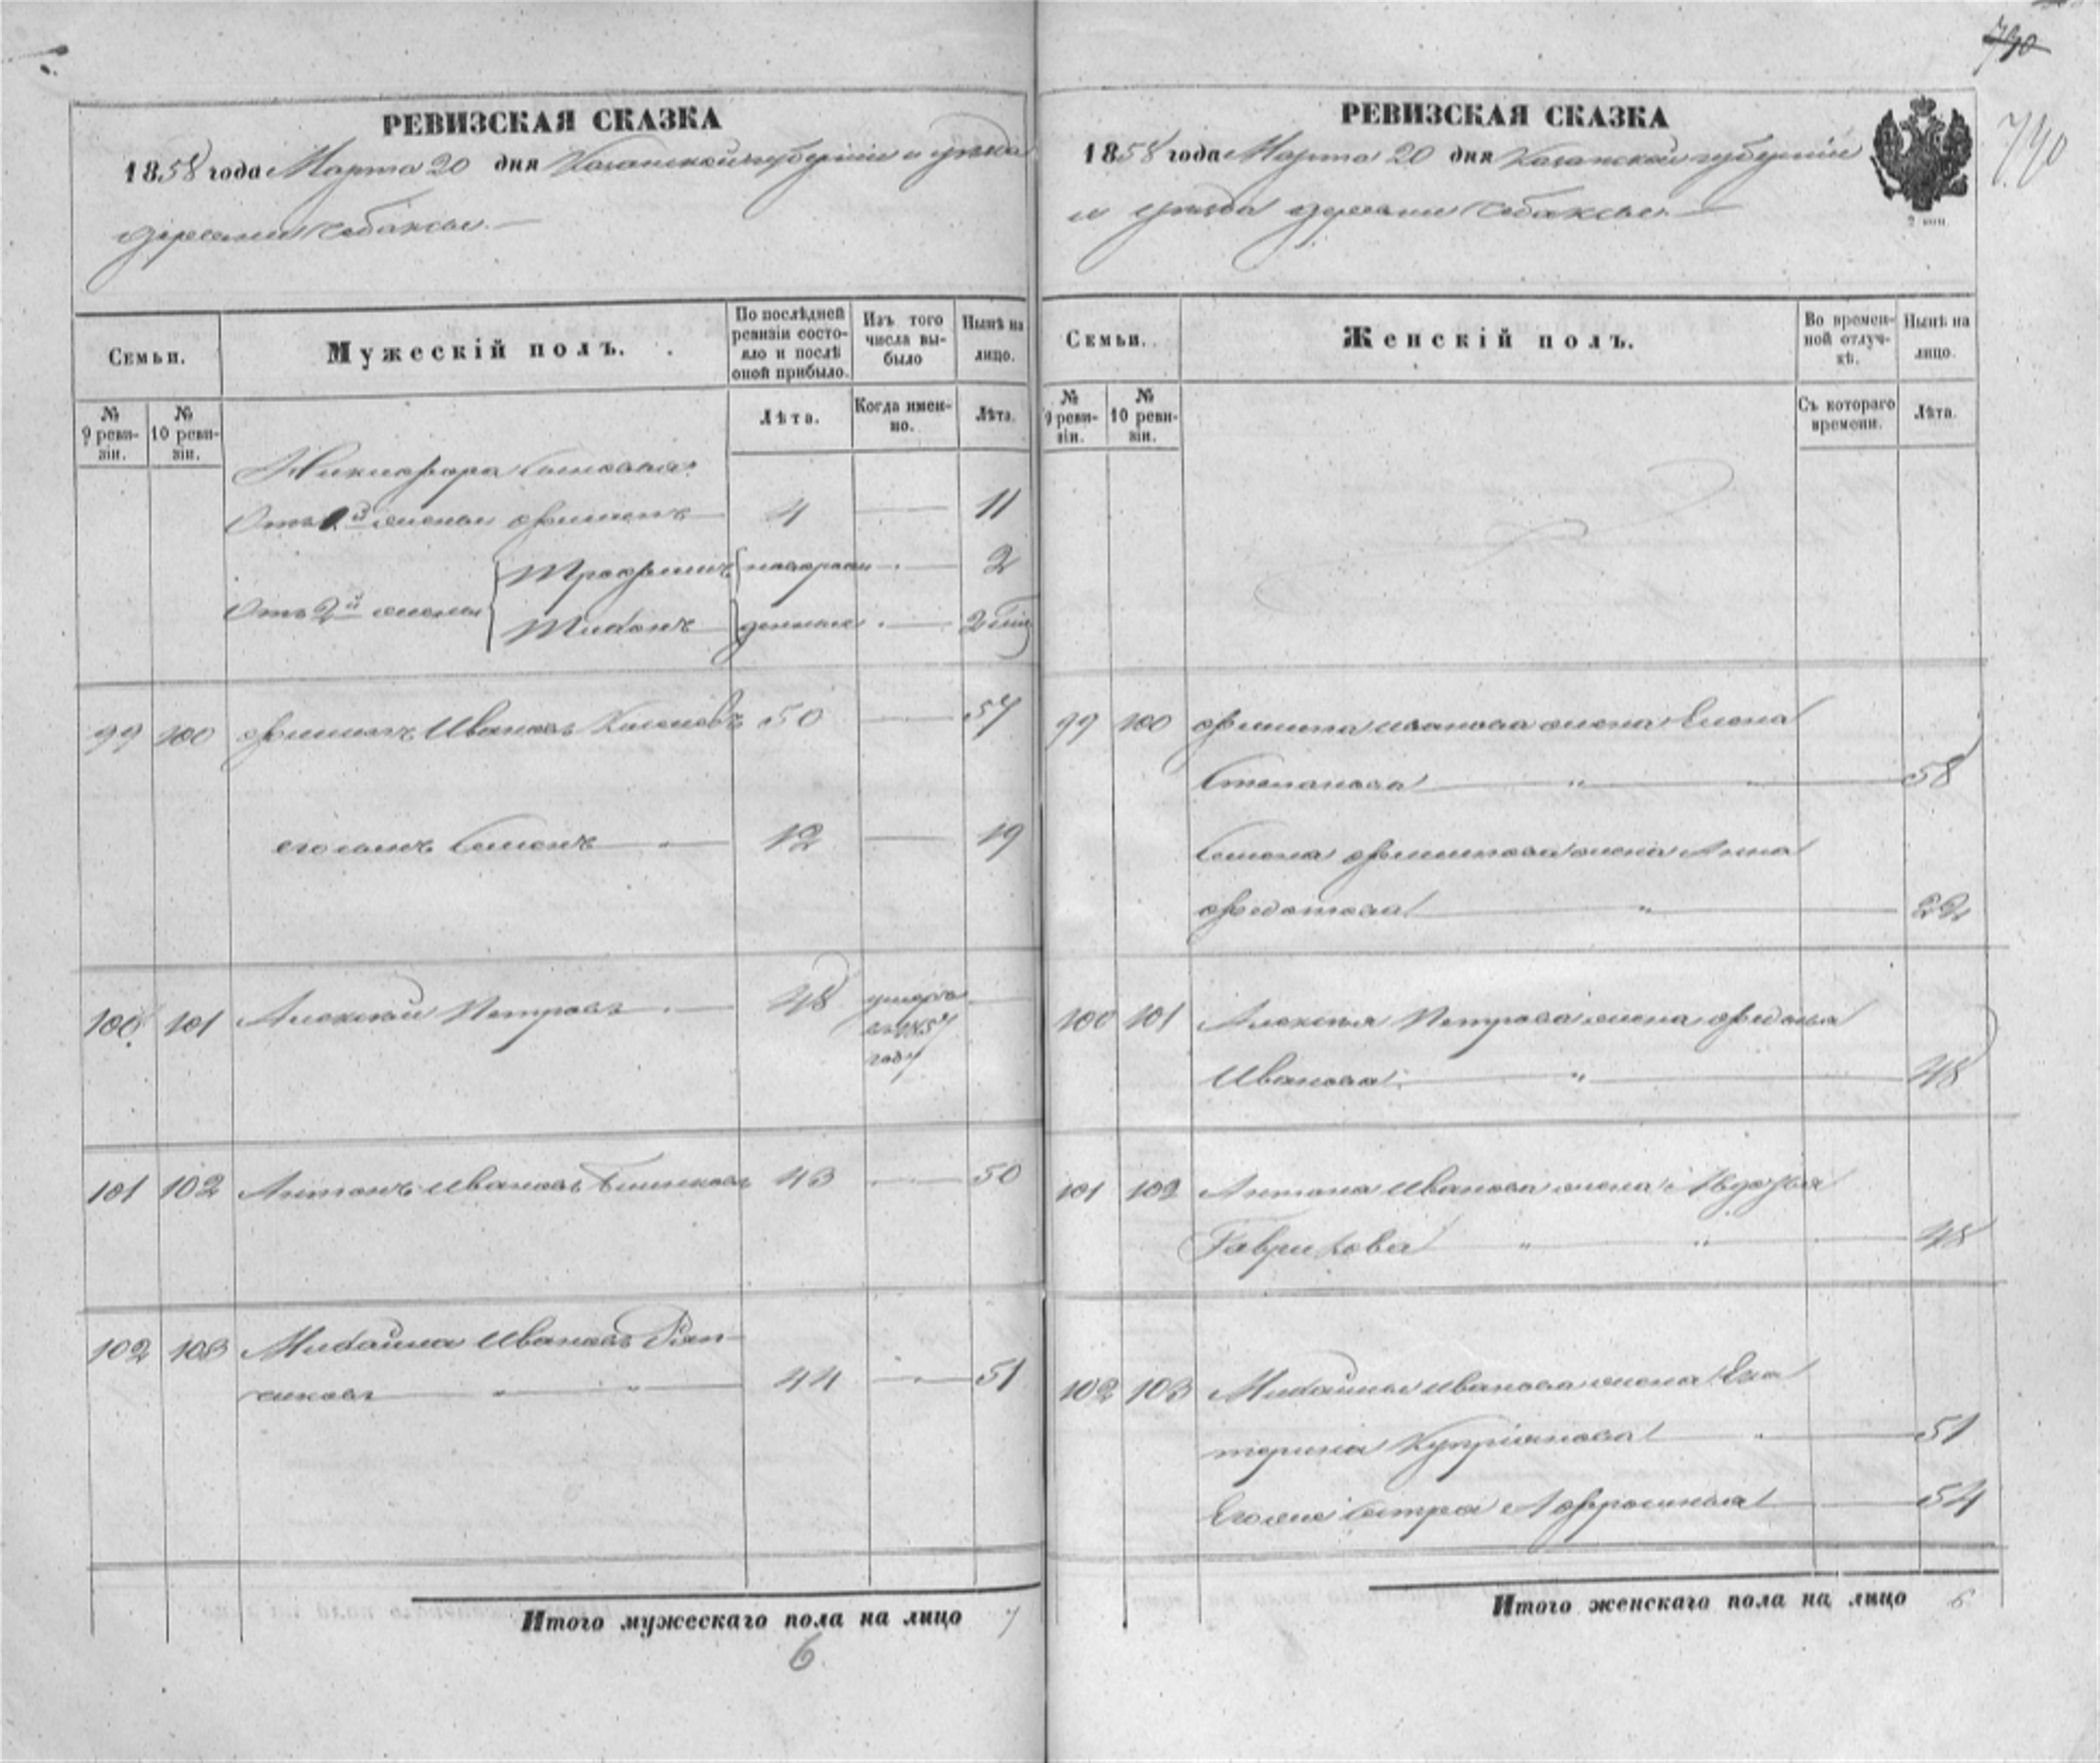 790
790
РЕВИЗСКАЯ СКАЗКА
1858 года Марта 20 дня Казанской губернiи и уѣзда
деревни Чебаксы.
Семьи.
Мужескiй полъ.
По послѣдней ревизiи состояло и послѣ оной прибыло.
Изъ того числа выбыло
Нынѣ на лицо.
№ 9 ревизiи.
№ 10 ревизiи.
Лѣта.
Когда именно.
Лѣта.
Никифора сыновья:
Отъ 1й жены Филипъ 4 11
Отъ 2й жены Трофимъ новорож 2
Тихонъ денные 2
99 100 Филипъ Ивановъ 50 57
его сынъ Семенъ 12 19
100 101 Алексѣй Петровъ 48 умеръ въ 1857 году
101 102 Антонъ Ивановъ 43 50
102 103 Михайла Ивановъ 44 51
Итого мужескаго пола на лицо 7
6
РЕВИЗСКАЯ СКАЗКА
1858 года Марта 20 дня Казанской губернiи
и уѣзда деревни Чебаксы.
2 коп.
Семьи.
Женскiй полъ.
Во временной отлучкѣ.
Нынѣ на лицо.
№ 9 ревизiи.
№ 10 ревизiи.
Съ котораго времени.
Лѣта.
99 100 Филипа Иванова жена Елена
Степанова 58
Семена Филипова жена Анна
Федотова 22
100 101 Алексѣя Петрова жена Федосья
Иванова 48
101 102 Антона Иванова жена Авдотья
Гаврилова 48
102 103 Михайлы Иванова жена Ека
терина Купрiянова 51
Его же сестра Афросинья 54
Итого женскаго пола на лицо 6